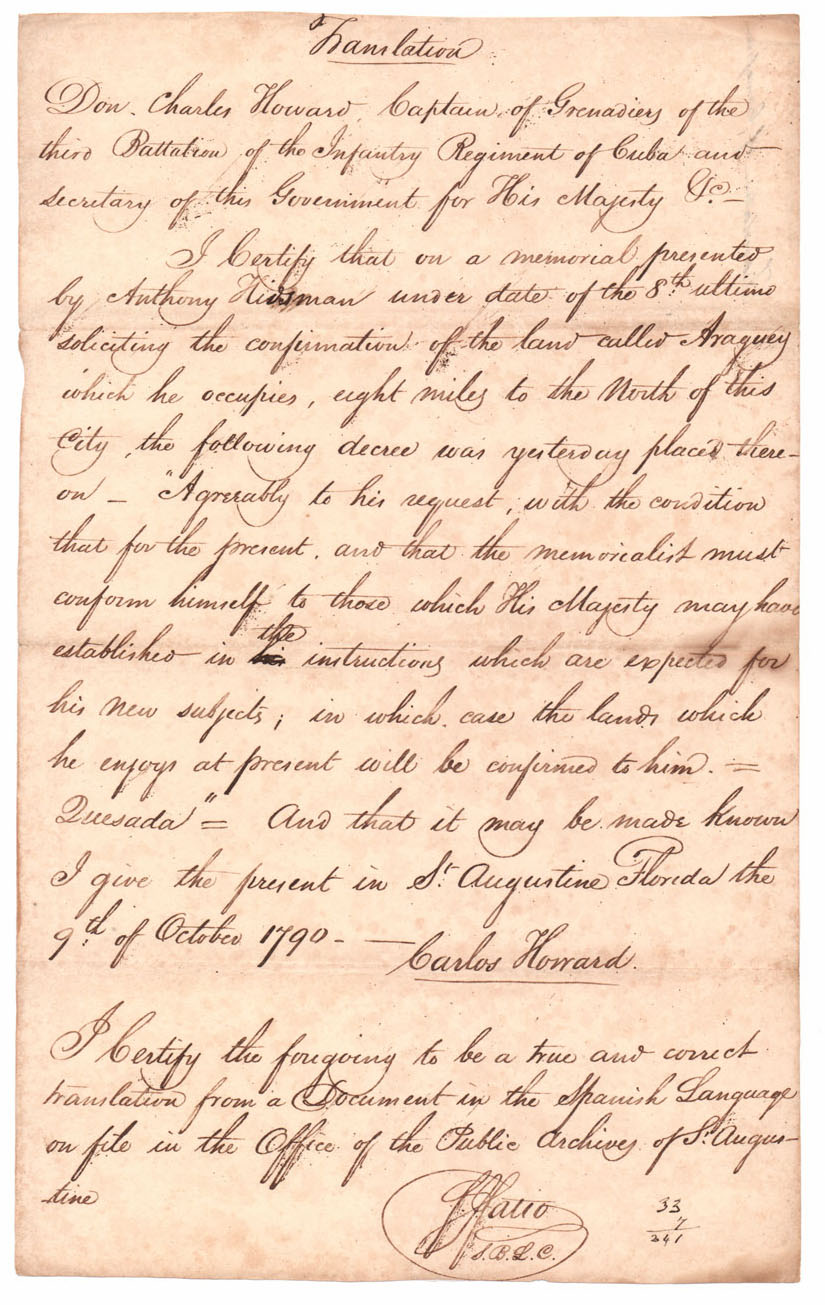 Translation
Don. Charles Howard, Captain, of Grenadiers of the
third Battalion of the Infantry Regiment of Cuba and
secretary of this Government for His Majesty &c. –
I Certify that on a memorial presented
by Anthony under date of the 8th ultimo
soliciting the confirmation of the land called Araguey
which he occupies, eight miles to the North of this
City, the following decree was yesterday placed there-
on – "Agreeably to his request, with the condition
that for the present, and that the memorialist must
conform himself to those which His Majesty may have
established in the instructions which are expected for
his new subjects; in which case the lands which
he enjoys at present will be confirmed to him. =
Quesada" = And that it may be made known
I give the present in St. Augustine Florida the
9th of October 1790 – —
Carlos Howard.
I Certify the foregoing to be a true and correct
translation from a Document in the Spanish Language
on file in the Office of the Public Archives of St. Augus-
-tine
S.B.L.C.
33
7